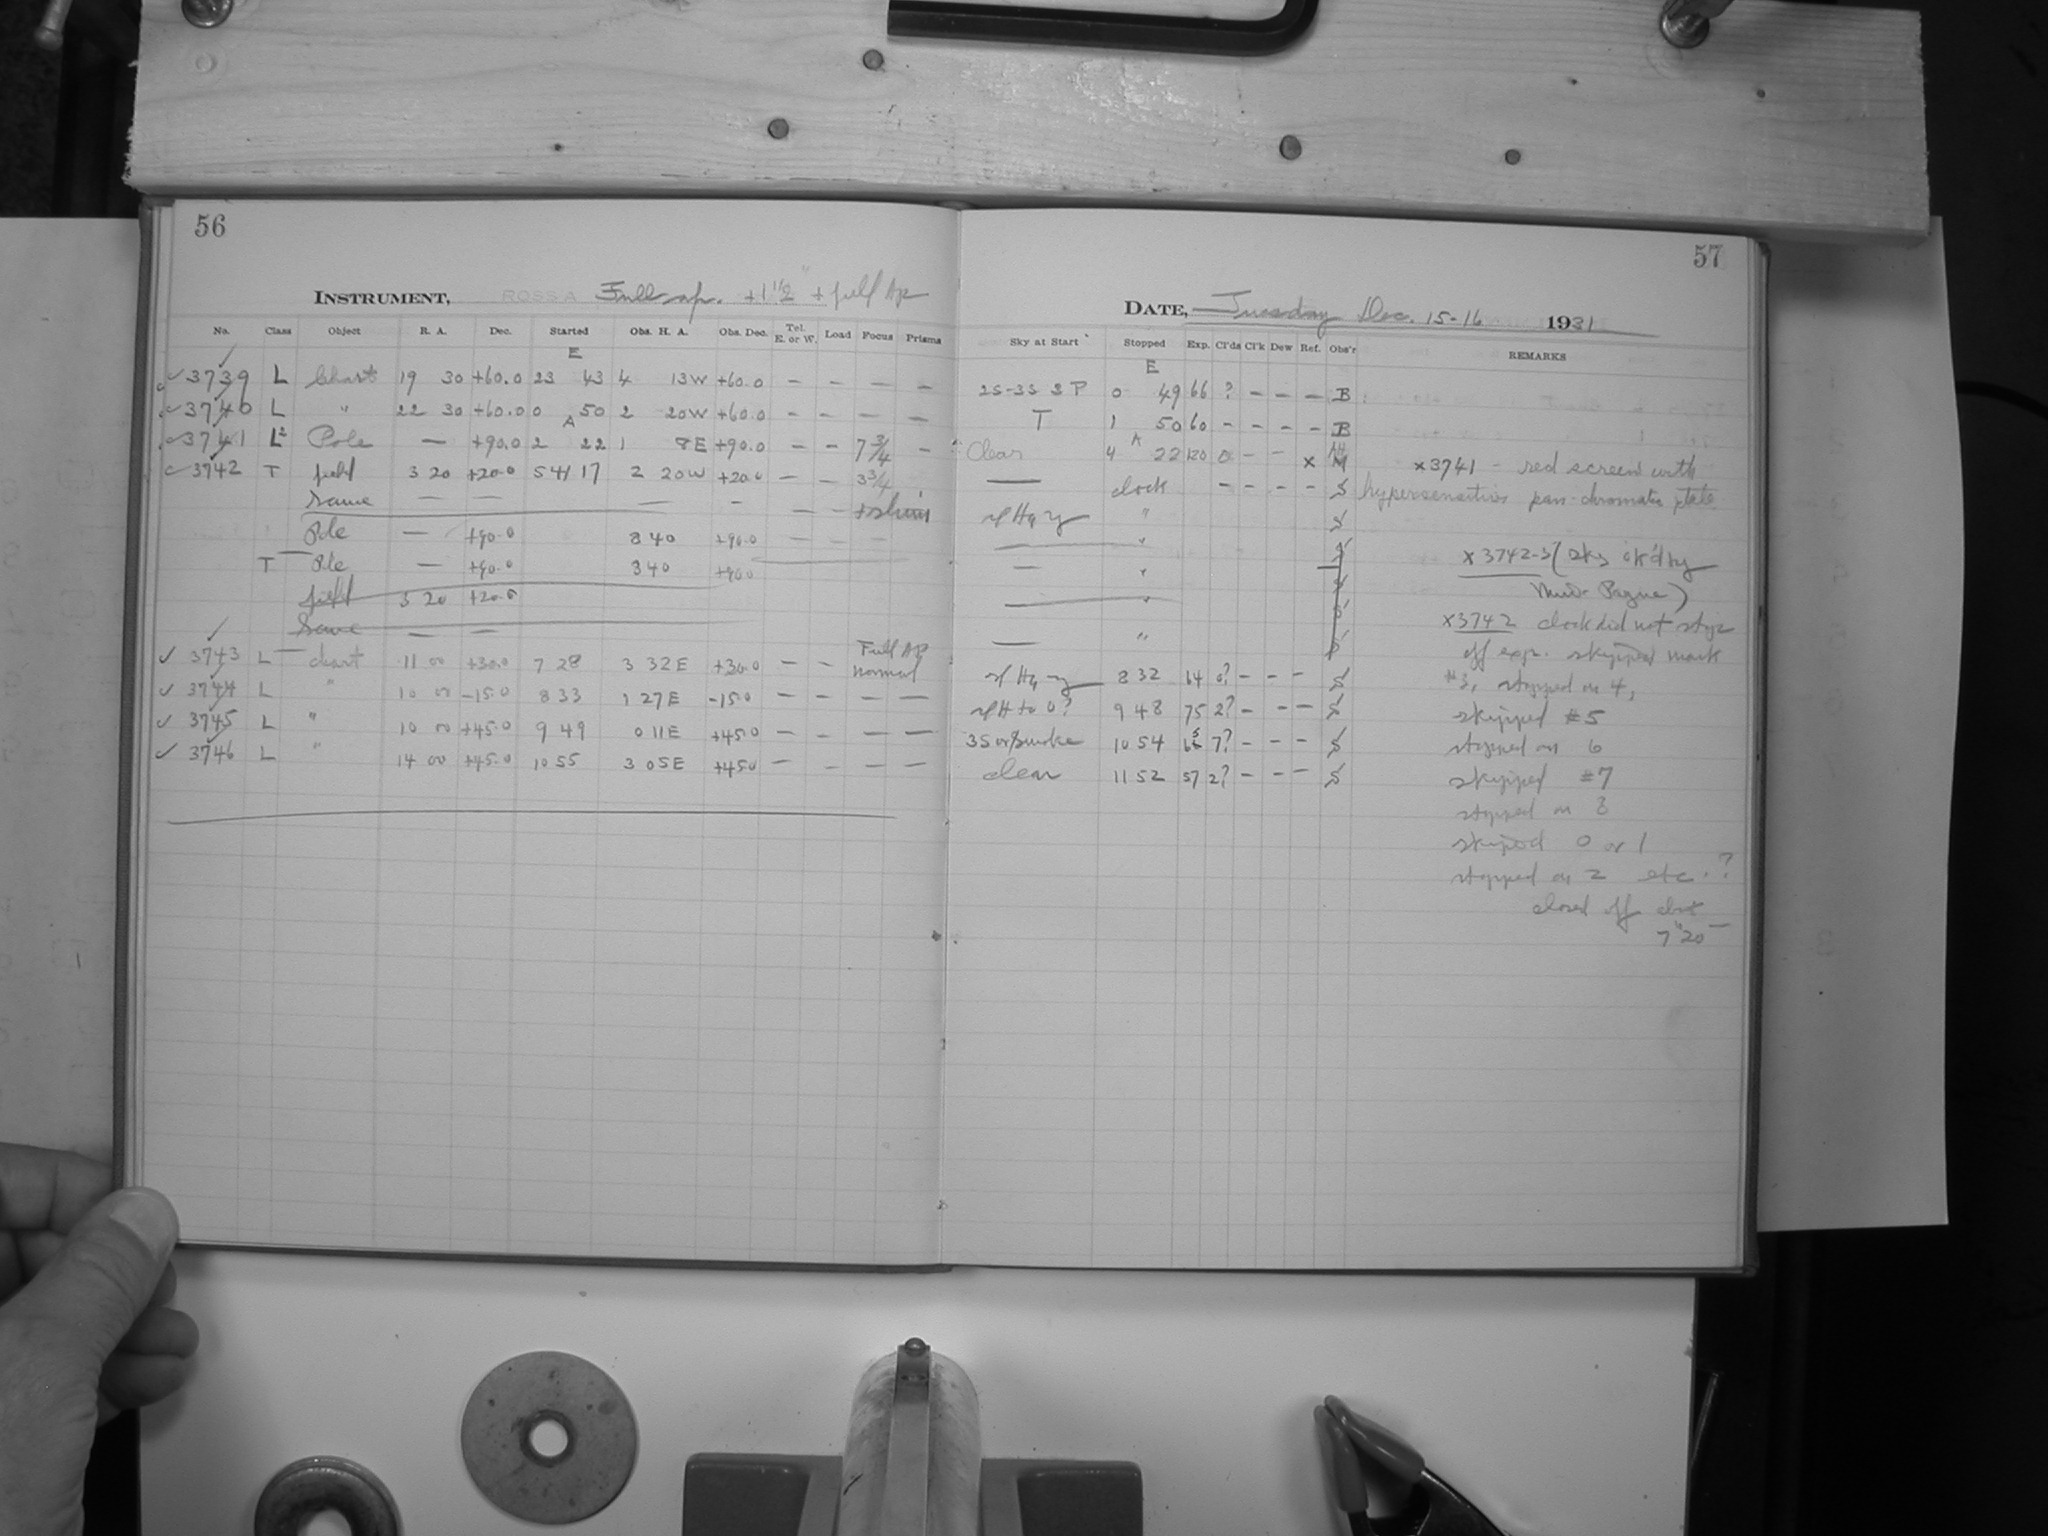 56
INSTRUMENT, ROSS A Full ap. +1 1/2" + full Ap
No. Class Object R. A. Dec. Started Obs. H. A. Obs. Dec. Tel. E. or W. Load Focus Prisms
E
✓ 3739 L Chart 19 30 +60.0 23 43 4 13W +60.0 — — — —
✓ 3740 L " 22 30 +60.0 0 50 2 20W +60.0 — — — —
A
✓ 3741 L² Pole — +90.0 2 22 1 8E +90.0 — — 7 3/4 —
✓ 3742 T field 3 20 +20.0 5 41 17 2 20W +20.0 — — 3 3/4
Same — — — — — —
Pole — +90.0 8 40 +90.0 — — —
T Pole — +90.0 3 40 +90.0
field 3 20 +20.0
Same — —
Full AP
✓ 3743 L chart 11 00 +30.0 7 28 3 32E +30.0 — — normal
✓ 3744 L " 10 00 -15.0 8 33 1 27E -15.0 — — — —
✓ 3745 L " 10 00 +45.0 9 49 0 11E +45.0 — — — —
✓ 3746 L " 14 00 +45.0 10 55 3 05E +45.0 — — — —
57
DATE, Tuesday Dec. 15-16 1931
Sky at Start Stopped Exp. Cl'ds Cl'k Dew Ref. Obs'r REMARKS
E
2S-3S 3 P 0 49 66 ? — — — B
T 1 50 60 — — — — B
A
Clear 4 22 120 0 — — x M x3741 - red screen with
— clock — — — — S hypersensitive pan-chromatic plate
" S
— "
— " x3742-3 (sky ok'd by
— " Miss Payne)
x3742 clock did not stop
— " S off exp. skipped mark
8 32 64 0? — — — S #3, stopped on 4,
9 48 75 2? — — — S skipped #5
3S or Smoke 10 54 65 7? — — — S stopped on 6
clear 11 52 57 2? — — — S skipped #7
stopped on 8
skipped 0 or 1
stopped on 2 etc.?
closed off
7 20